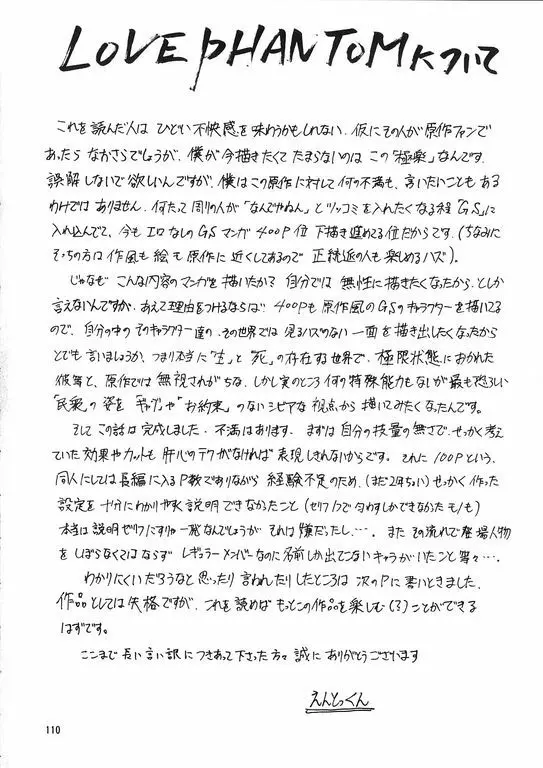 LOVE PHANTOMについて
これを読んだ人は ひどい不快感を味わうかもしれない. 仮にその人が原作ファンで
あったら なおさらでしょうが. 僕が今描きたくて たまらないのは この「極楽」なんです.
誤解しないで欲しいんですが、僕はこの原作に対して何の不満も、言いたいことも ある
わけでは ありません. 何たって周りの人が「なんでやねん」とツッコミを入れたくなる程「GS」に
入れ込んでて、今も エロなしのGSマンガ 400P位 下描き進めてる位だからです。(ちなみに
そっちの方は作風も絵も原作に近くしてあるので 正統派の人も楽しめるハズ).
じゃなぜ こんな内容のマンガを描いたか? 自分では 無性に描きたくなったから. としか
言えないんですが. あえて理由をつけるならば 400Pも 原作風のGSのキャラクターを描いてる
ので、自分の中の そのキャラクター達の. その世界では 見るハズのない 一面を描き出したくなったから
とでも言いましょうか. つまり本当に「生」と「死」の存在する世界で、極限状態におかれた
彼等と、原作では無視されがちな. しかし実のところ 何の特殊能力もないが最も恐ろしい
「民衆」の姿を「ギャグ」や「お約束」のないシビアな視点から 描いてみたくなったんです。
そして この話は完成しました. 不満はあります. まずは自分の技量の無さで. せっかく考え
ていた効果やカットも 肝心のテクがなければ 表現しきれないからです. それに 100Pという.
同人にしては長編に入るP数でありながら 経験不足のため. (まだ2年ちょい) せっかく作った
設定を 十分にわかりやすく説明できなかったこと (セリフ1つで匂わすしかできなかったモノも)
本当は説明ゼリフにすりゃ一発なんでしょうが それは嫌だったし…. また その流れで登場人物
を しぼらなくてはならず レギュラーメンバーなのに名前しか出てこないキャラがいたこと等々….
わかりにくいだろうなと思ったり 言われたりしたところは 次のPに書いときました.
作品としては失格ですが、これを読めば もっとこの作品を楽しむ(?)ことができる
はずです。
ここまで 長い言い訳に つきあって下さった方々 誠に ありがとうございます
えんとっくん
110